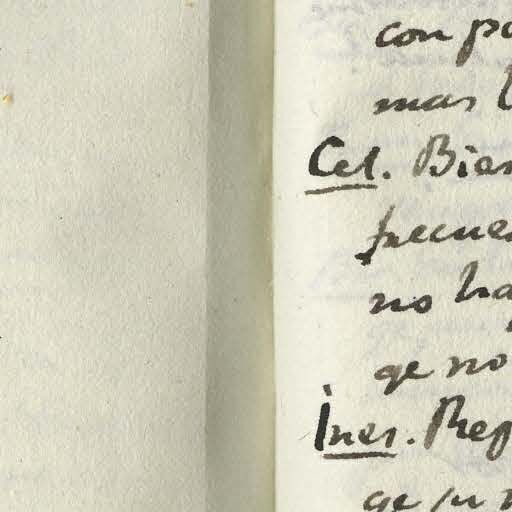 con po
mas l
Cel. Bien
frecuen
no ha
qe no
Ines. Rep
qe su